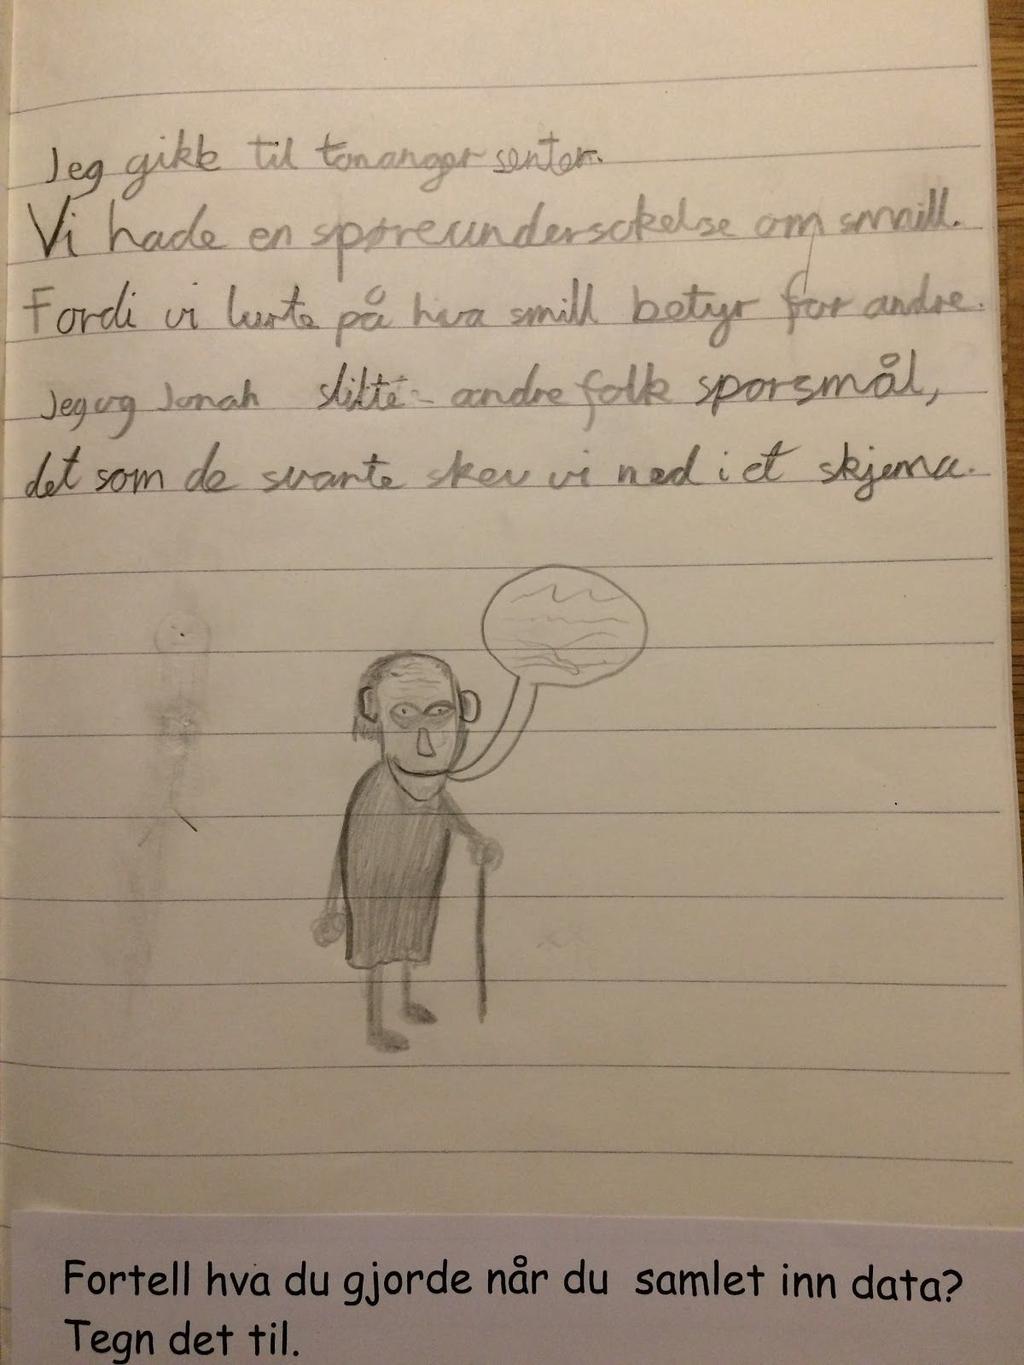 Jeg gikk til tananger senter.
Vi hade en spøreundersøkelse om smill.
Fordi vi lurte på hva smill betyr for andre.
Jeg og Jonah stilte andre folk sporsmål,
det som de svarte skev vi ned i et skjema.
Fortell hva du gjorde når du samlet inn data?
Tegn det til.